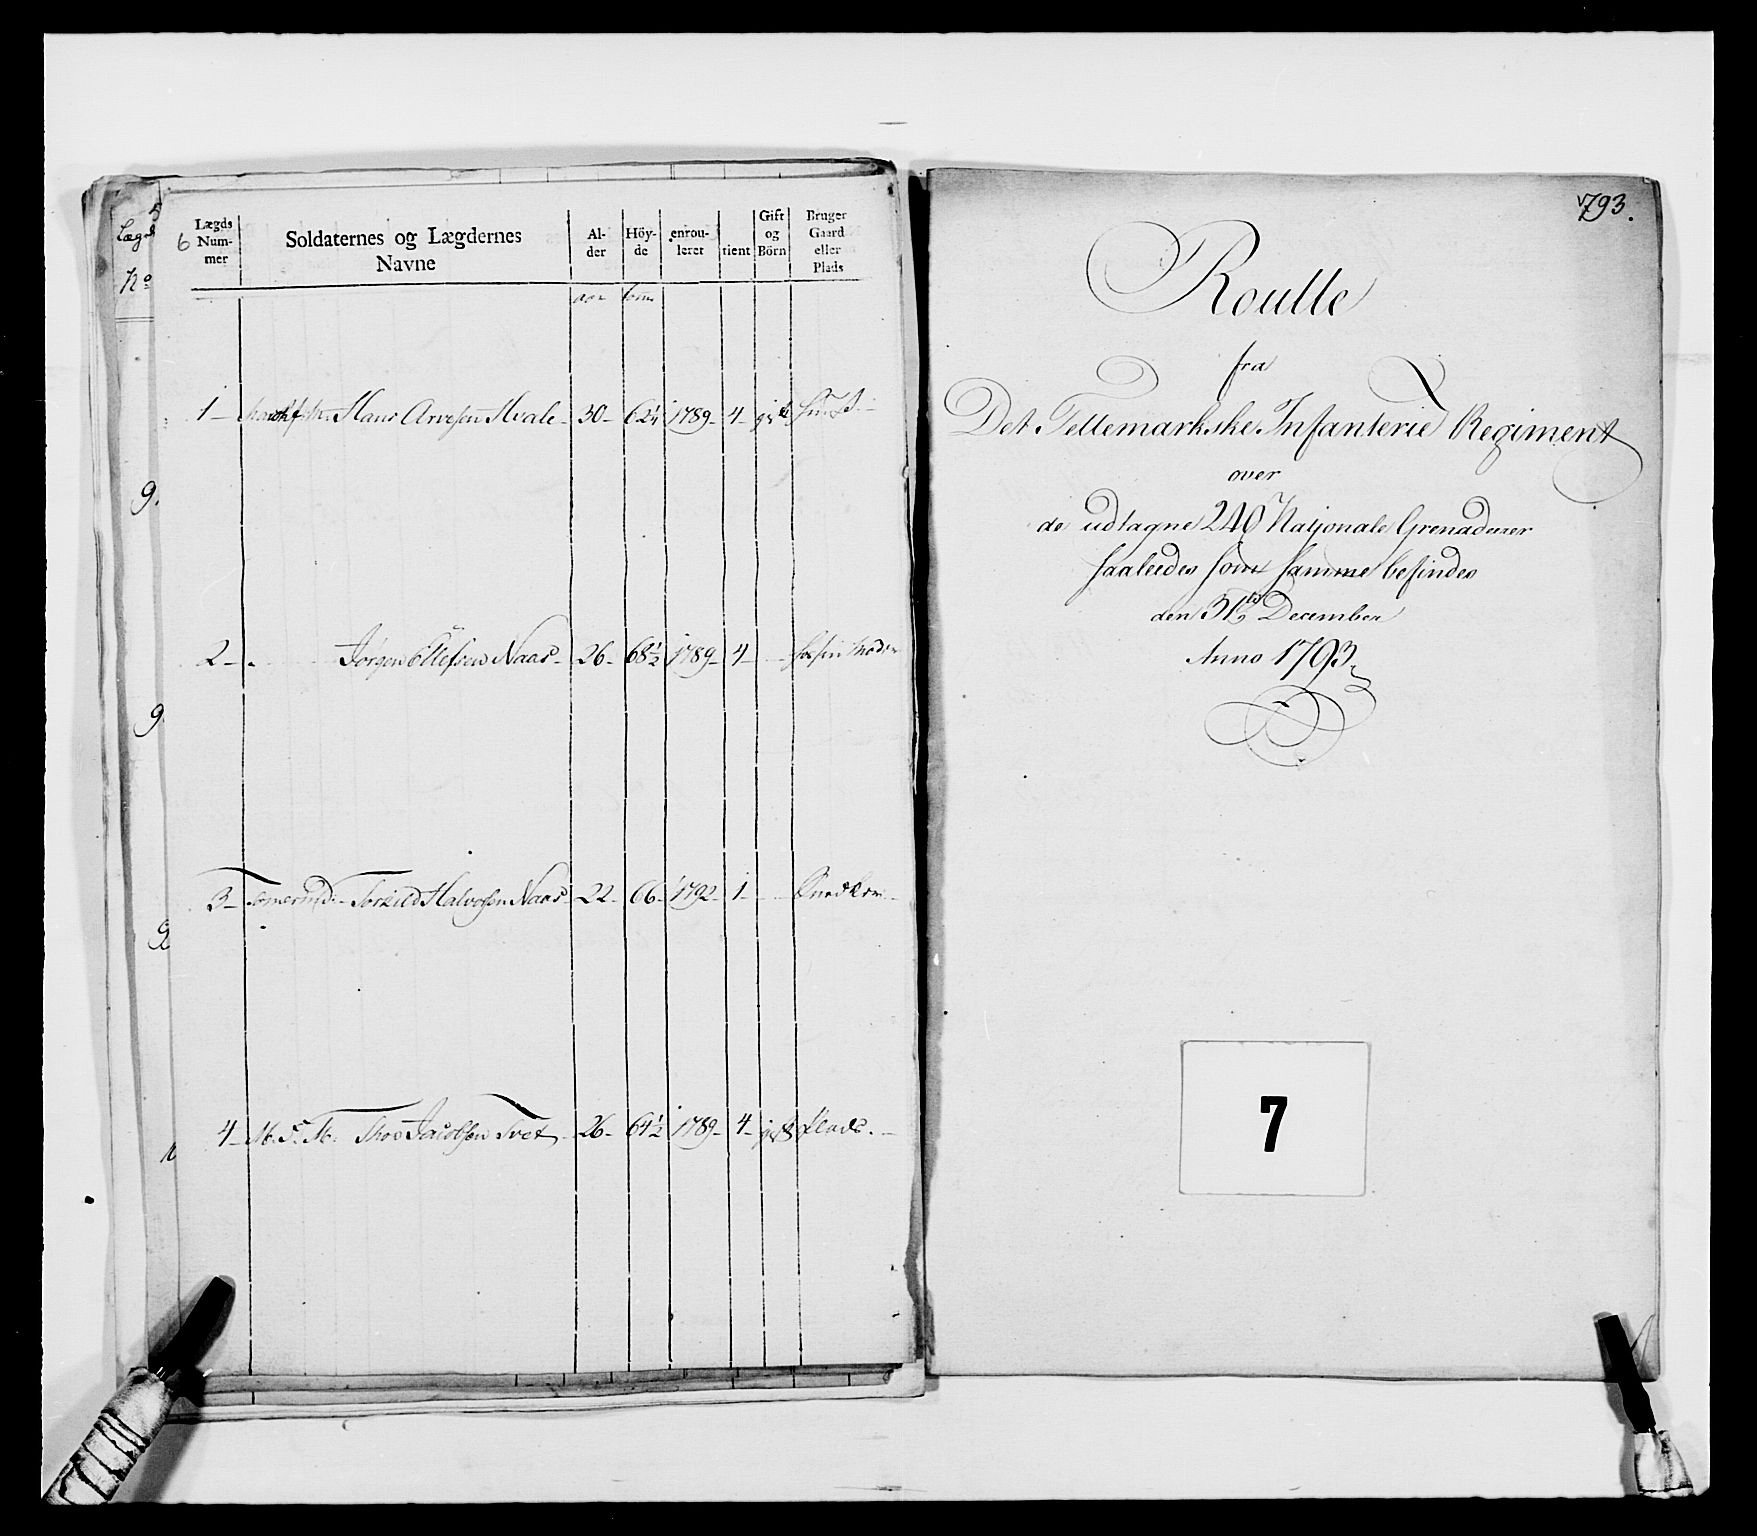 5
Lægd
No
9.
9.
9
6
Lægds Num- mer
Soldaternes og Lægdernes Navne
Al- der
Höy- de
enrou- leret
tient
Gift og Börn
Bruger Gaard eller Plads
aar tom
1 - Hans Arvesen Hvale - 30 - 62¼ 1789 - 4 - gift
2 - Jörgen Ollefsen Naas - 26 - 68½ 1789 - 4 -
3 - Torkild Halvorsen Naas 22 - 66 - 1792 - 1 -
4 - Thos Jacobsen Tvet - 26 - 64½ 1789 - 4 - gift Plads. -
1793.
Roulle
fra
Det Tellemarkske Infanterie Regiment
over
de udtagne 240 Nationale Grenaderer
saaledes som samme befindes
den 31te December
Anno 1793
7